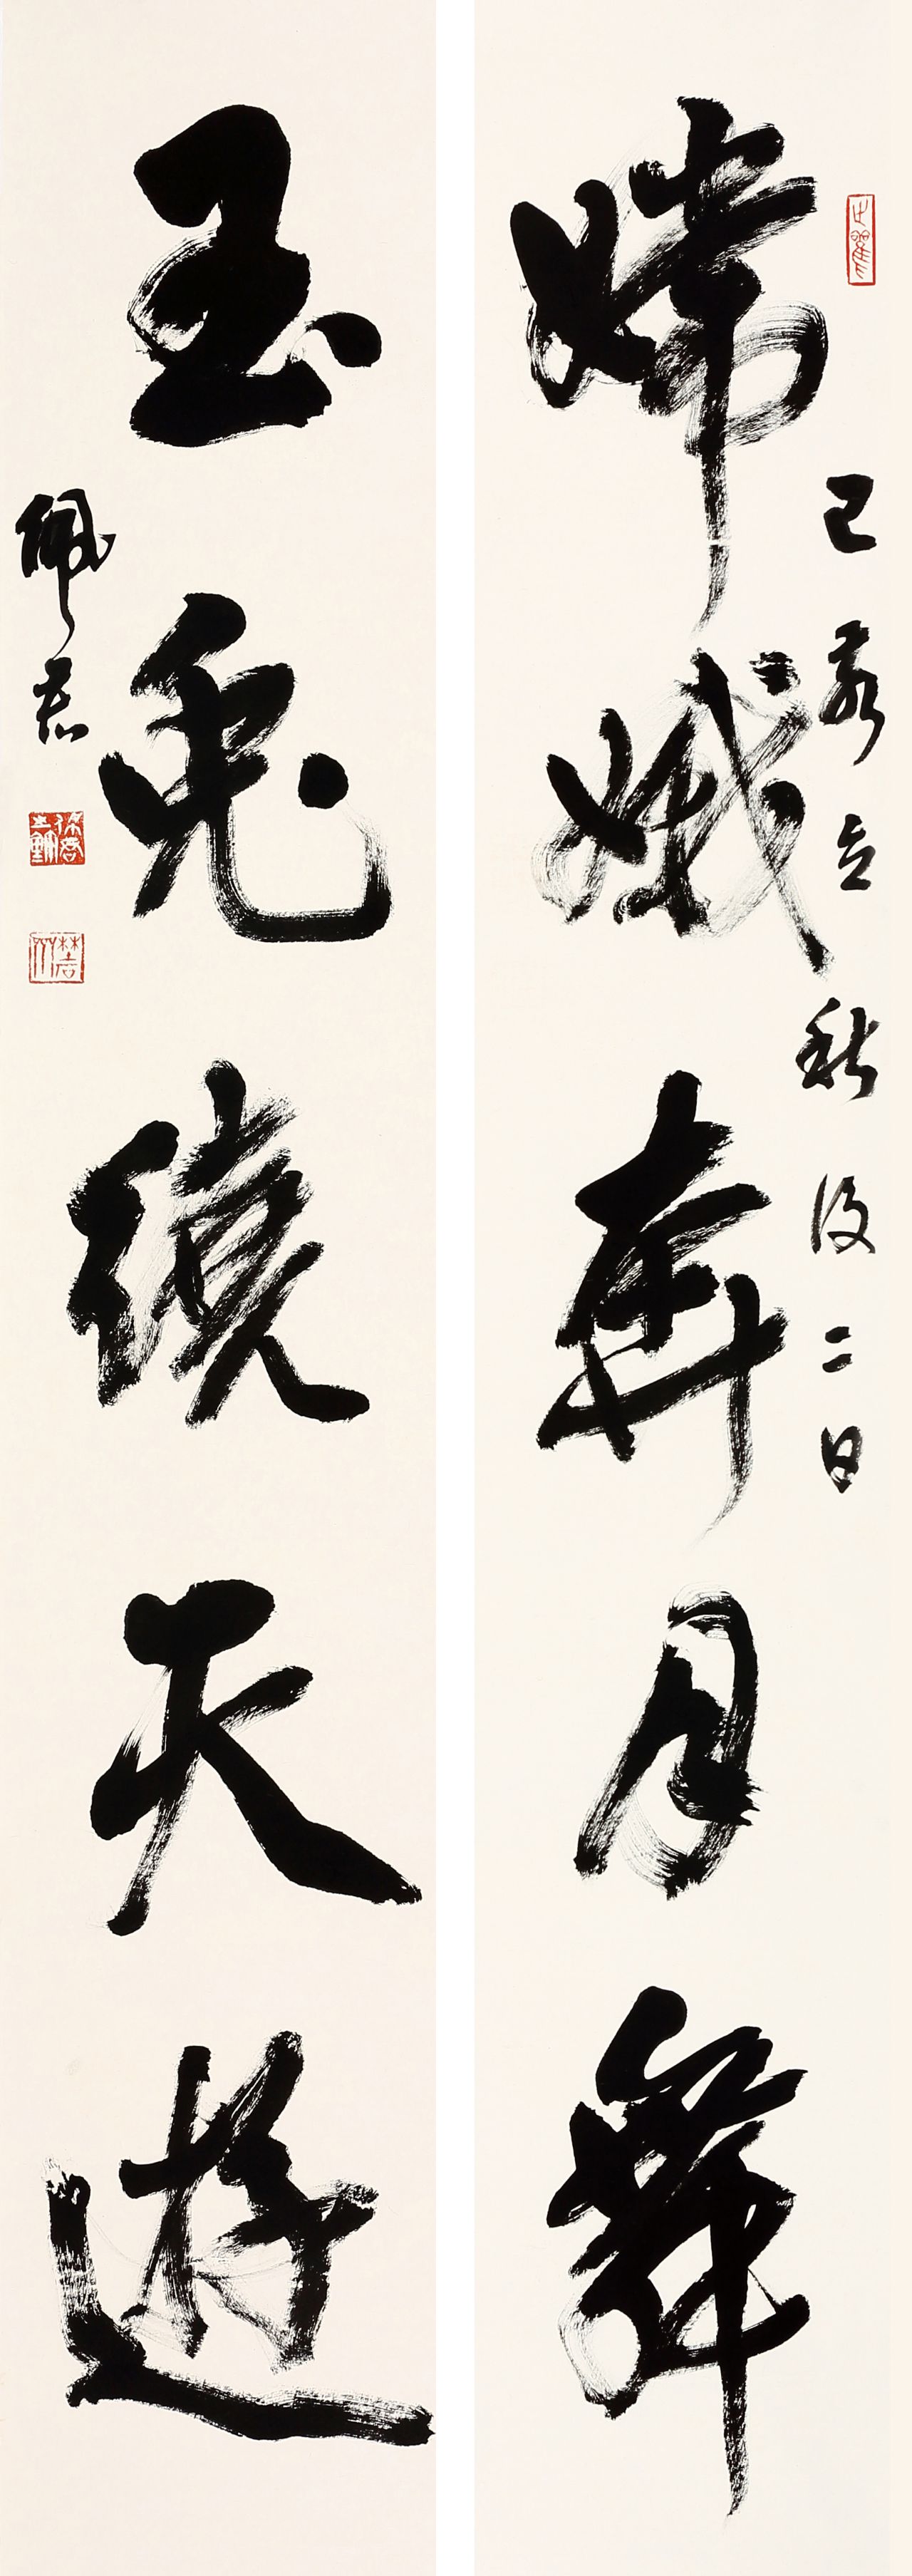 嫦娥奔月舞
己亥立秋後二日
玉兔繞天遊
佩君